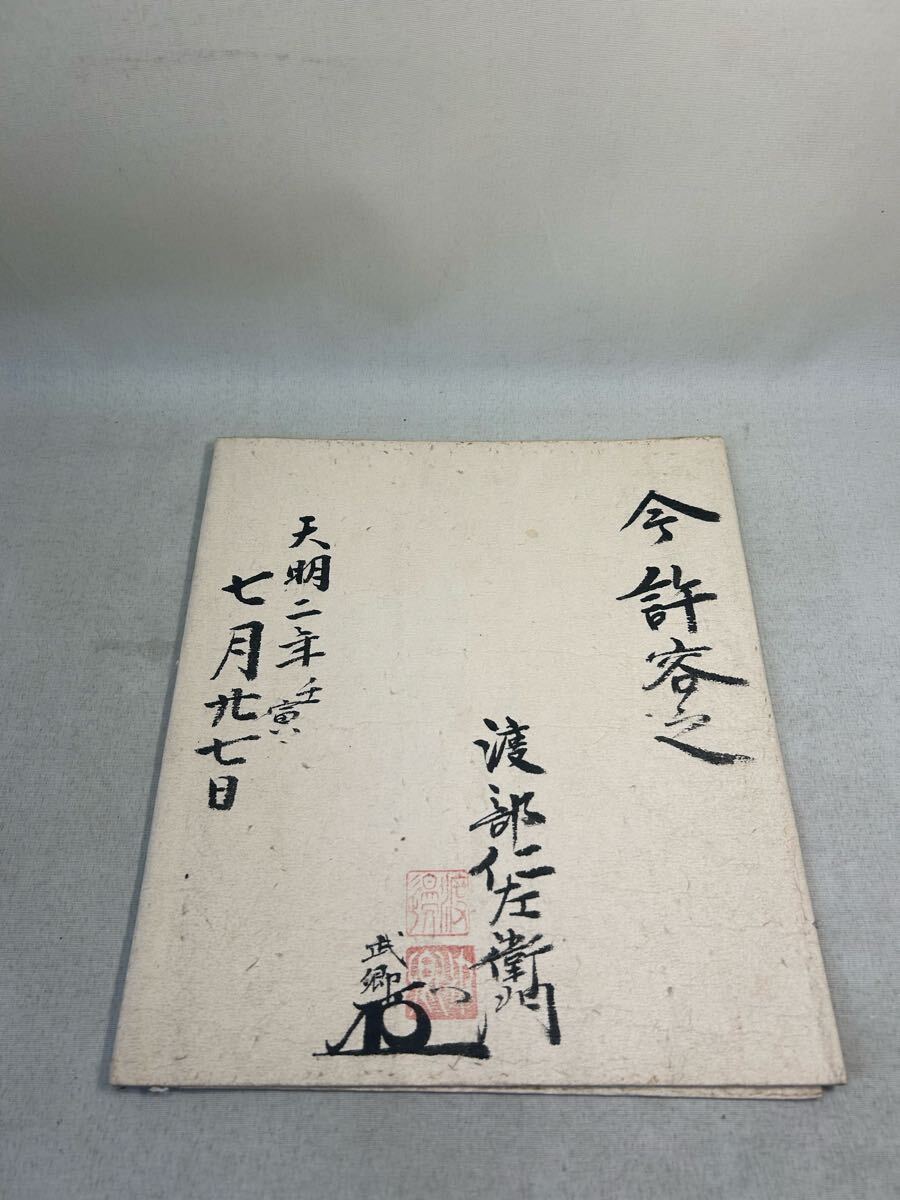 今許容之
渡部仁左衛門
武郷
天明二年壬寅
七月廿七日